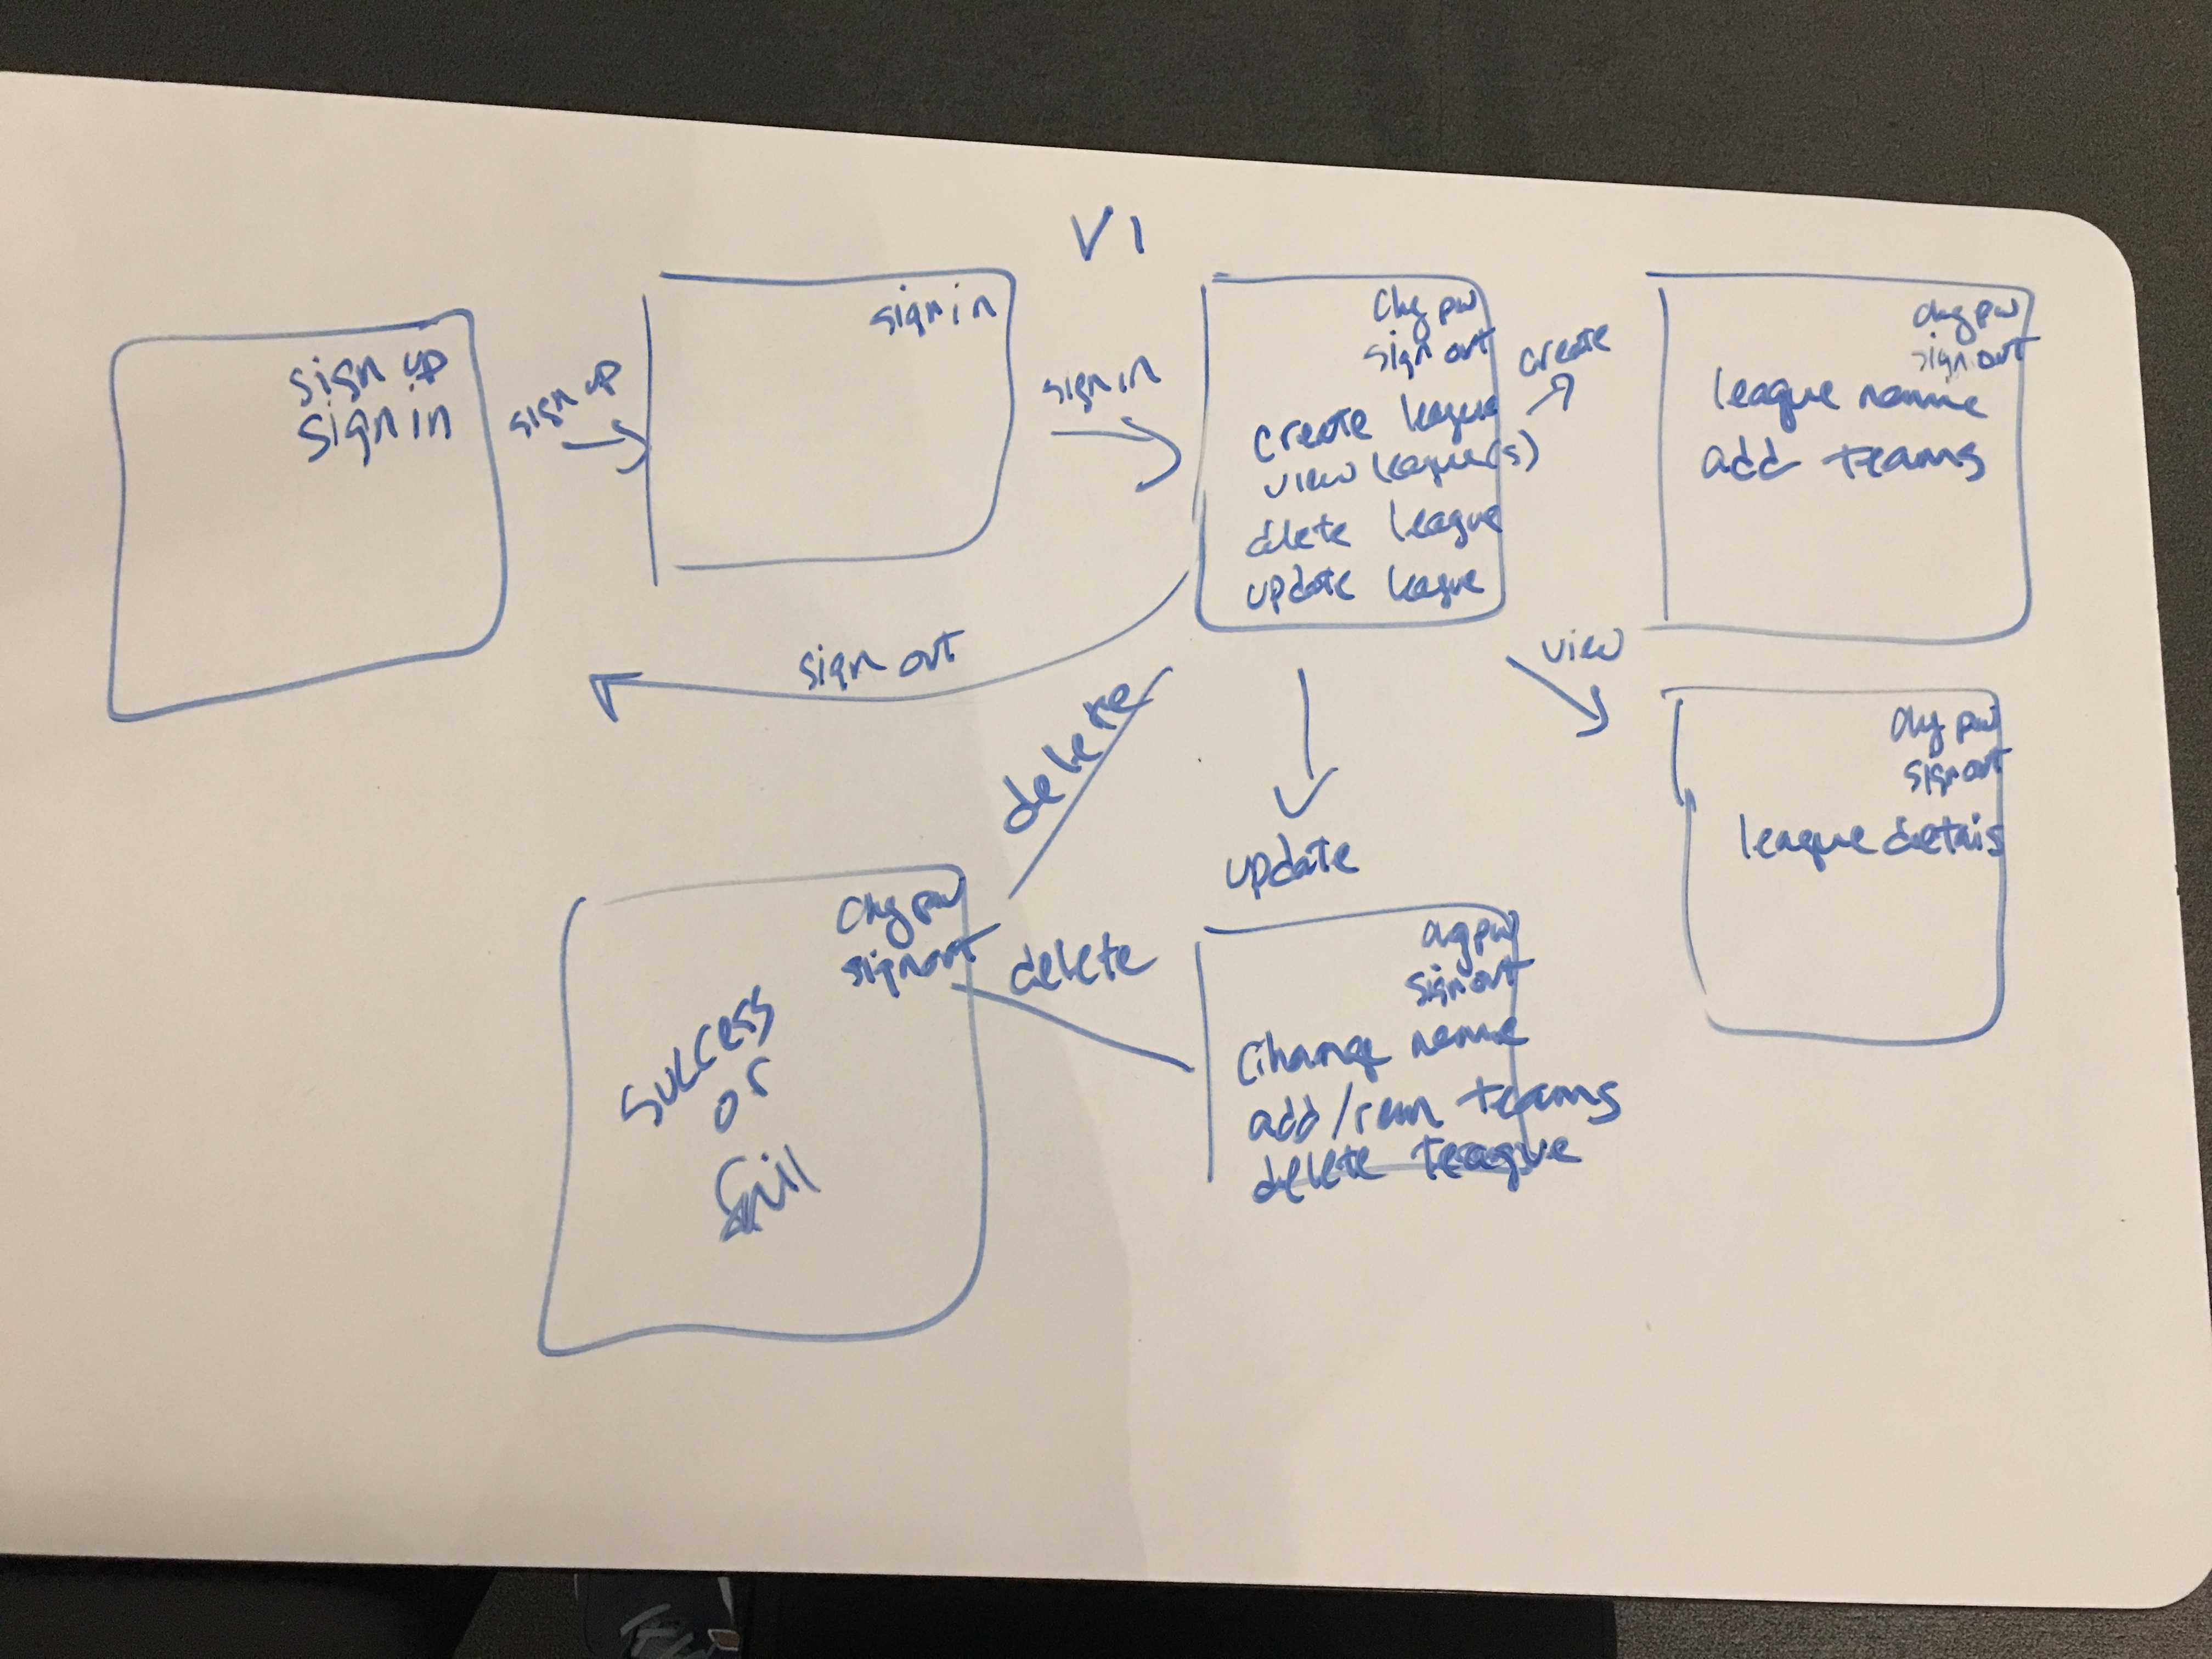 V1
sign up
sign in
sign up
sign in
sign in
Chg pw
sign out
create league
view league(s)
delete league
update league
create
chg pw
sign out
league name
add teams
sign out
view
chg pw
sign out
league detais
delete
update
Chg pw
sign out
success
or
fail
delete
chg pw
sign out
Change name
add/rem teams
delete league